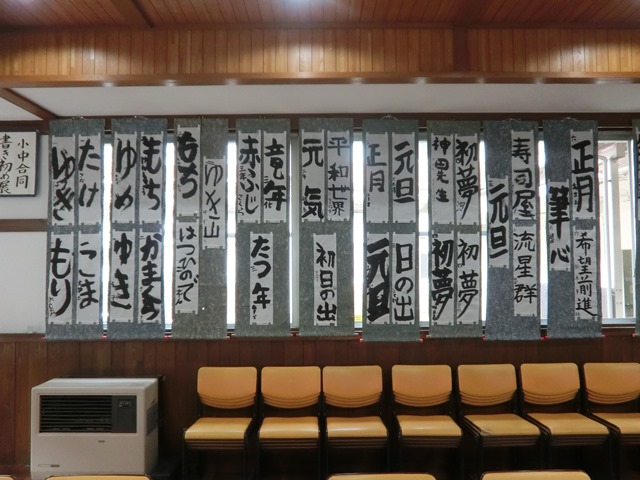 小中合同
書き初め展
たけ
ゆき
こま
もり
もち
ゆめ
かまくら
ゆき
ゆき山
もち
はつひので
竜年
赤ふじ
たつ年
平和世界
元気
初日の出
元旦
正月
日の出
元旦
初夢
初夢
初夢
寿司屋
流星群
元旦
正月
希望前進
筆心